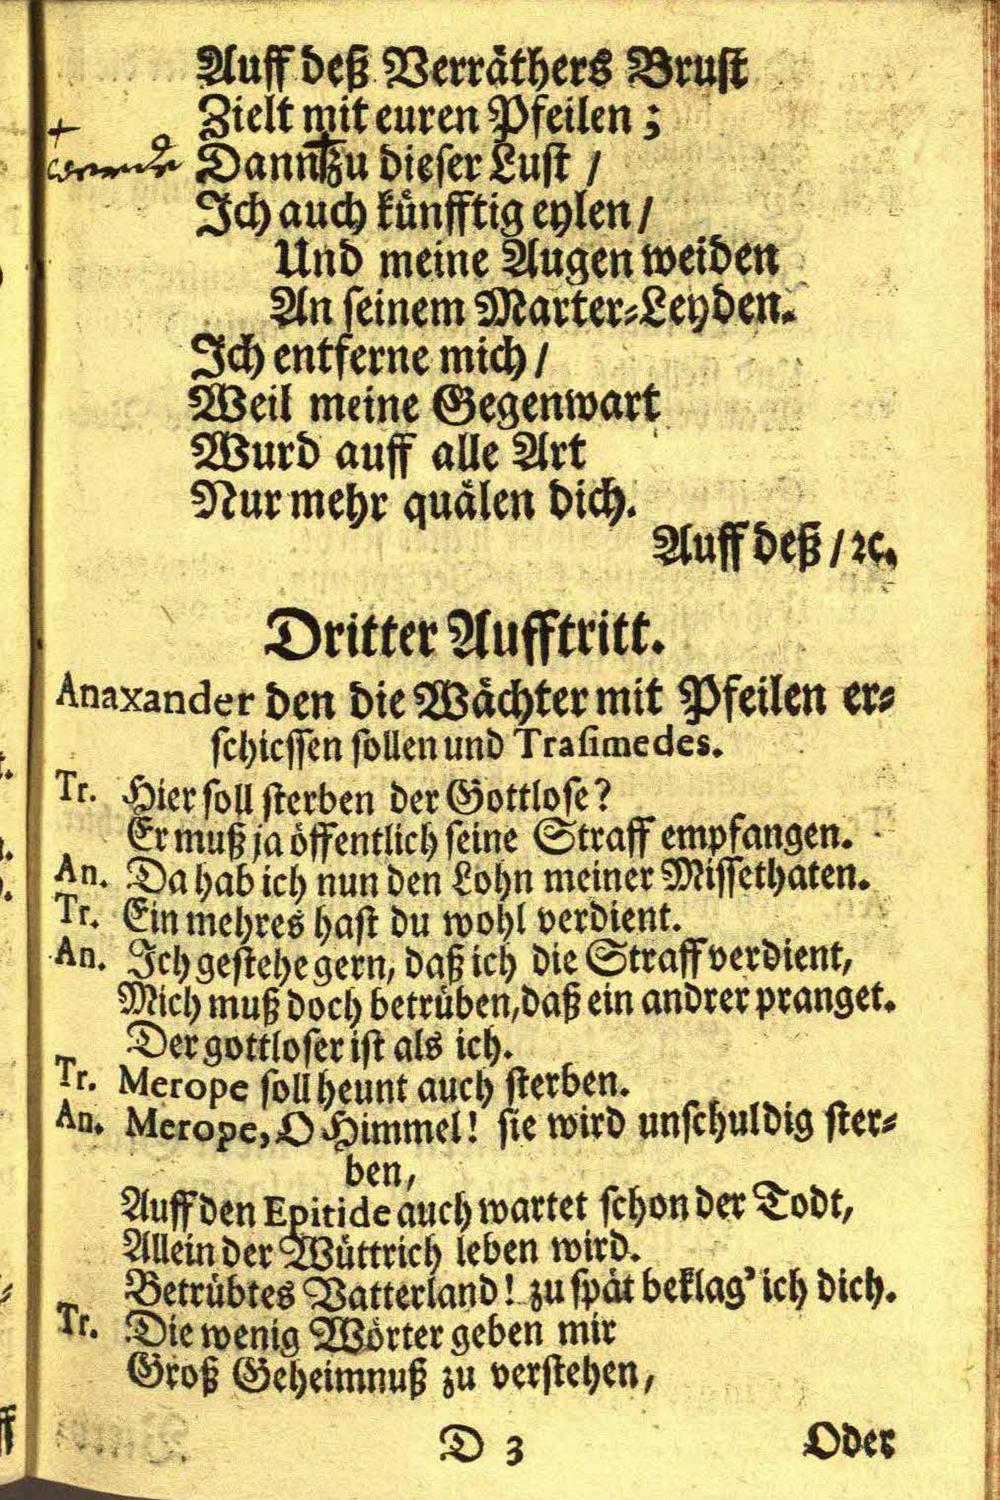 Auff deß Verräthers Brust
Zielt mit euren Pfeilen;
+
werde Dann zu dieser Lust /
Ich auch künfftig eylen /
Und meine Augen weiden
An seinem Marter-Leyden.
Ich entferne mich /
Weil meine Gegenwart
Wurd auff alle Art
Nur mehr quälen dich.
Auff deß / ꝛc.
Dritter Aufftritt.
Anaxander den die Wächter mit Pfeilen er-
schiessen sollen und Trasimedes.
Tr. Hier soll sterben der Gottlose?
Er muß ja öffentlich seine Straff empfangen.
An. Da hab ich nun den Lohn meiner Missethaten.
Tr. Ein mehres hast du wohl verdient.
An. Ich gestehe gern, daß ich die Straff verdient,
Mich muß doch betrüben, daß ein andrer pranget.
Der gottloser ist als ich.
Tr. Merope soll heunt auch sterben.
An. Merope, O Himmel! sie wird unschuldig ster-
ben,
Auff den Epitide auch wartet schon der Todt,
Allein der Wüttrich leben wird.
Betrübtes Vatterland! zu spät beklag' ich dich.
Tr. Die wenig Wörter geben mir
Groß Geheimnuß zu verstehen,
D 3 Oder